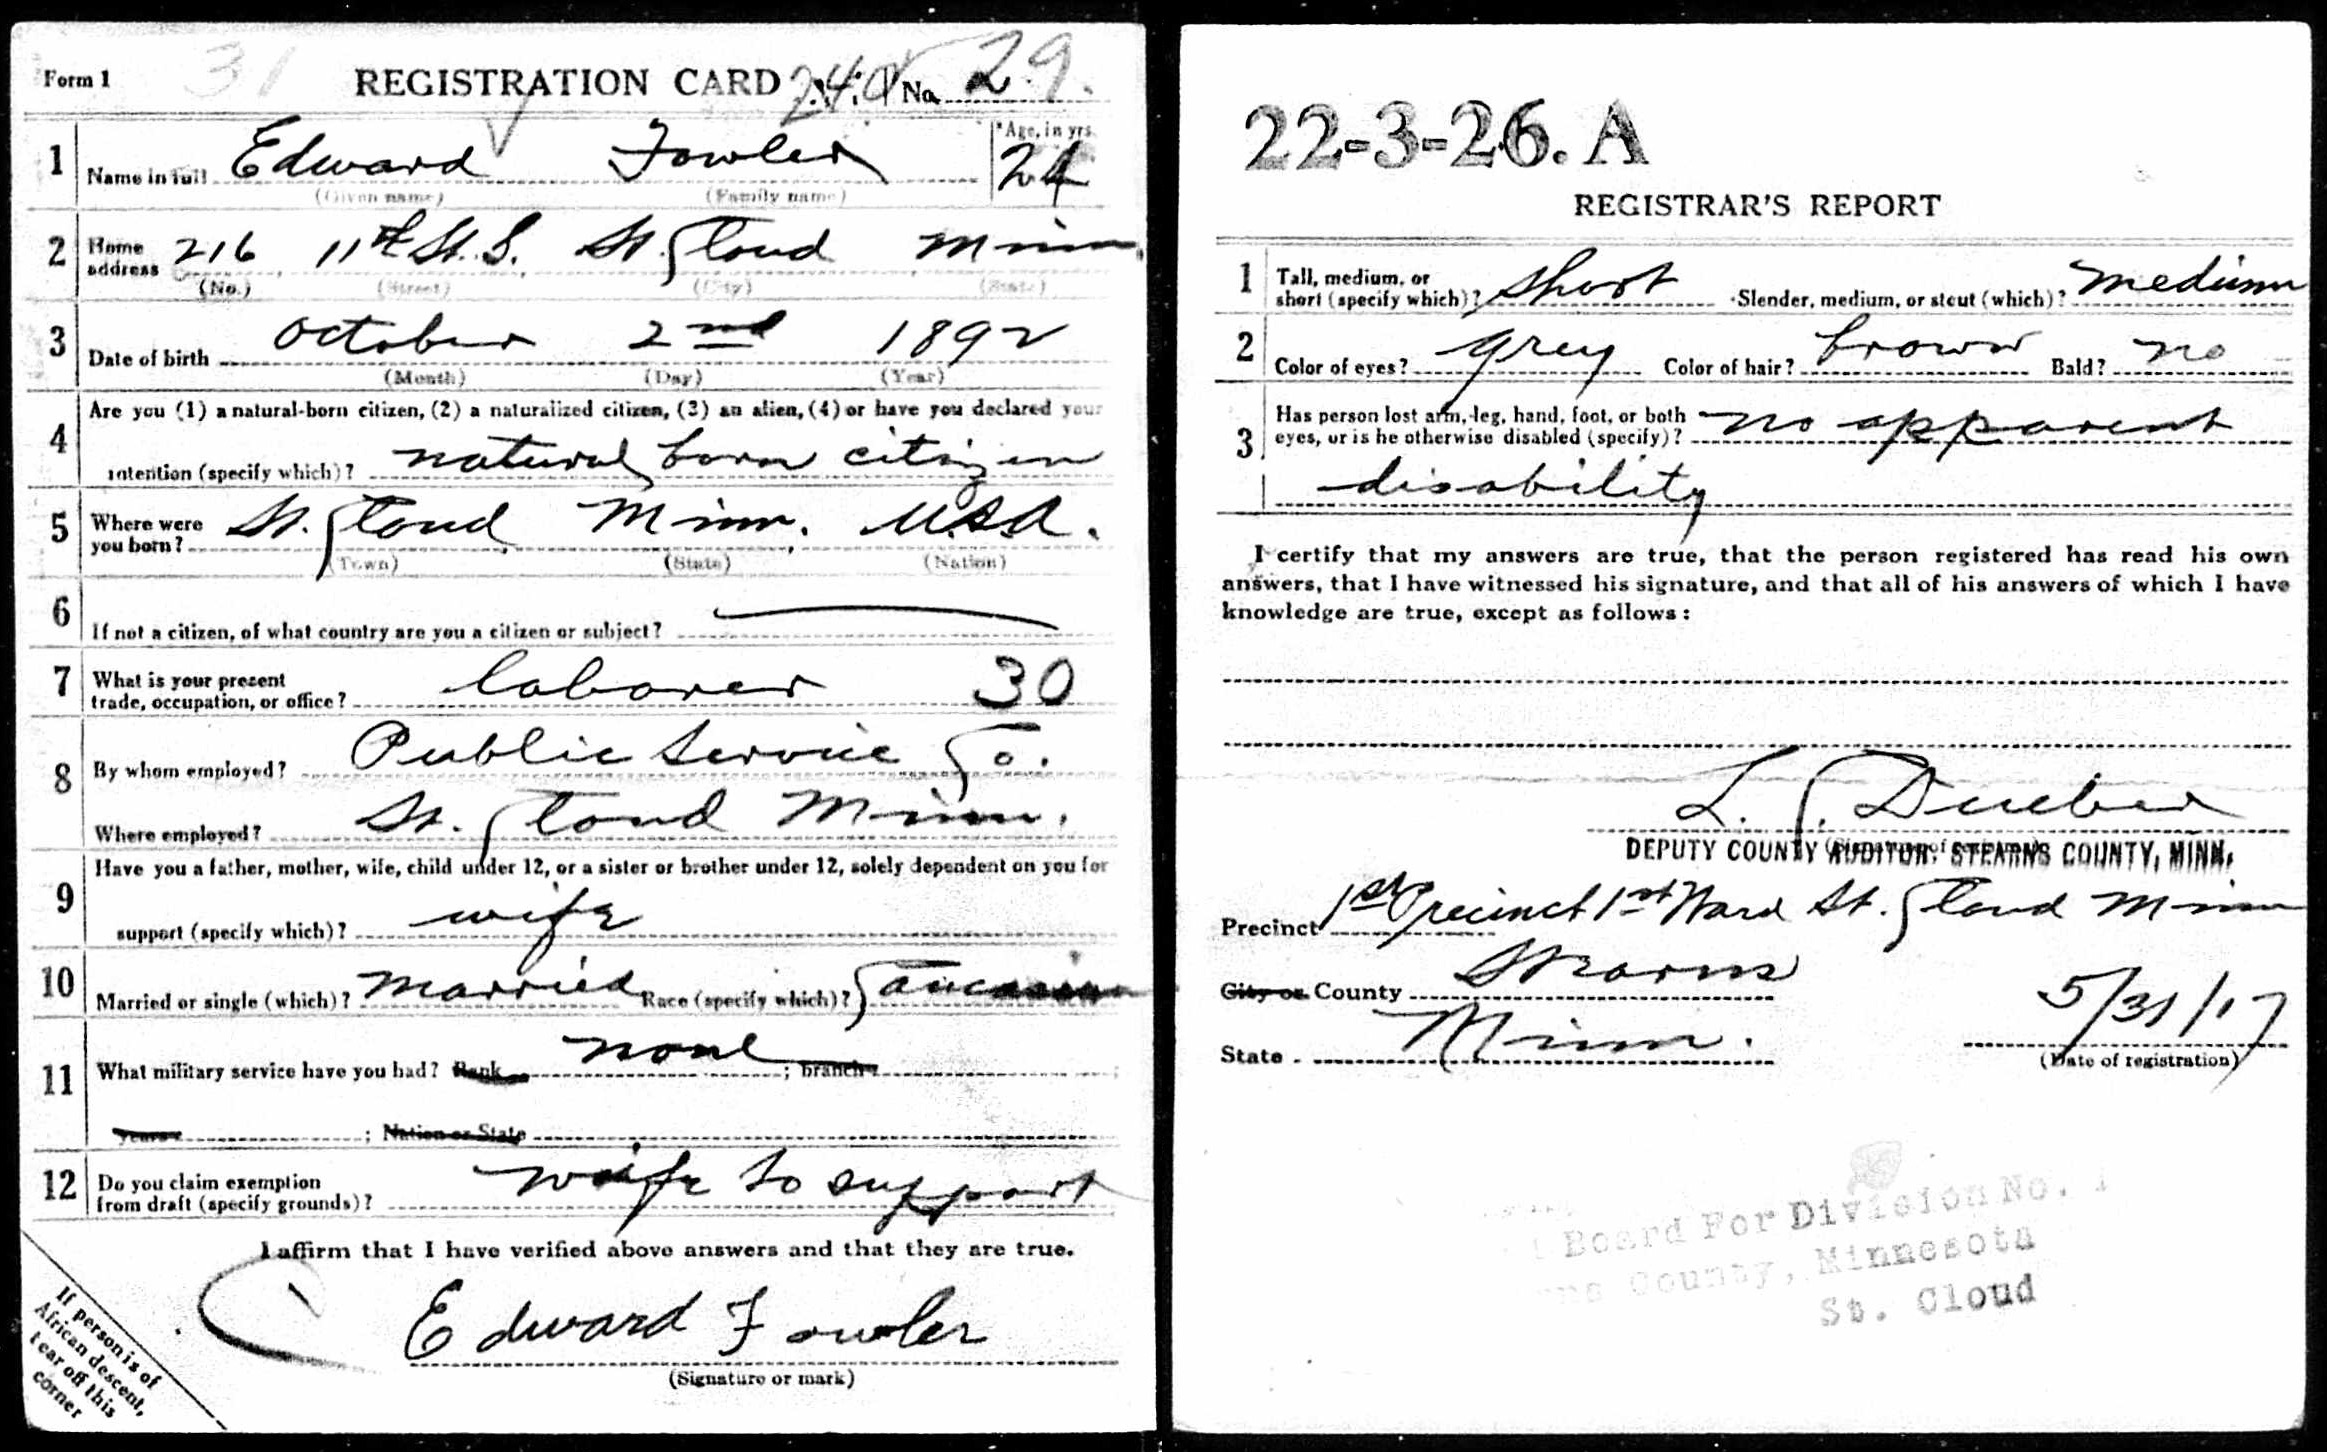 31
Form 1 REGISTRATION CARD 240 No. 29.
1 Name in full Edward Fowler *Age, in yrs. 24
(Given name) (Family name)
2 Home address 216 11th St. S. St. Cloud Minn.
(No.) (Street) (City) (State)
3 Date of birth October 2nd 1892
(Month) (Day) (Year)
4 Are you (1) a natural-born citizen, (2) a naturalized citizen, (3) an alien, (4) or have you declared your
intention (specify which)? natural born citizen
5 Where were you born? St. Cloud Minn. U.S.A.
(Town) (State) (Nation)
6 If not a citizen, of what country are you a citizen or subject?
7 What is your present
trade, occupation, or office? laborer 30
8 By whom employed? Public Service Co.
Where employed? St. Cloud Minn.
9 Have you a father, mother, wife, child under 12, or a sister or brother under 12, solely dependent on you for
support (specify which)? wife
10 Married or single (which)? Married Race (specify which)? Caucasian
11 What military service have you had? Rank none ; branch ;
years ; Nation or State
12 Do you claim exemption
from draft (specify grounds)? wife to support
I affirm that I have verified above answers and that they are true.
Edward Fowler
(Signature or mark)
If person is of
African descent,
tear off this
corner
22-3-26. A
REGISTRAR'S REPORT
1 Tall, medium, or
short (specify which)? short Slender, medium, or stout (which)? medium
2 Color of eyes? grey Color of hair? brown Bald? no
3 Has person lost arm, leg, hand, foot, or both
eyes, or is he otherwise disabled (specify)? no apparent
disability
I certify that my answers are true, that the person registered has read his own
answers, that I have witnessed his signature, and that all of his answers of which I have
knowledge are true, except as follows:
L. C. Dueber
(Signature of
DEPUTY COUNTY AUDITOR. STEARNS COUNTY, MINN.
Precinct 1st Precinct 1st Ward St. Cloud Minn
City or County Stearns
State Minn. 5/31/17
(Date of registration)
Board For Division No. 1
County, Minnesota
St. Cloud